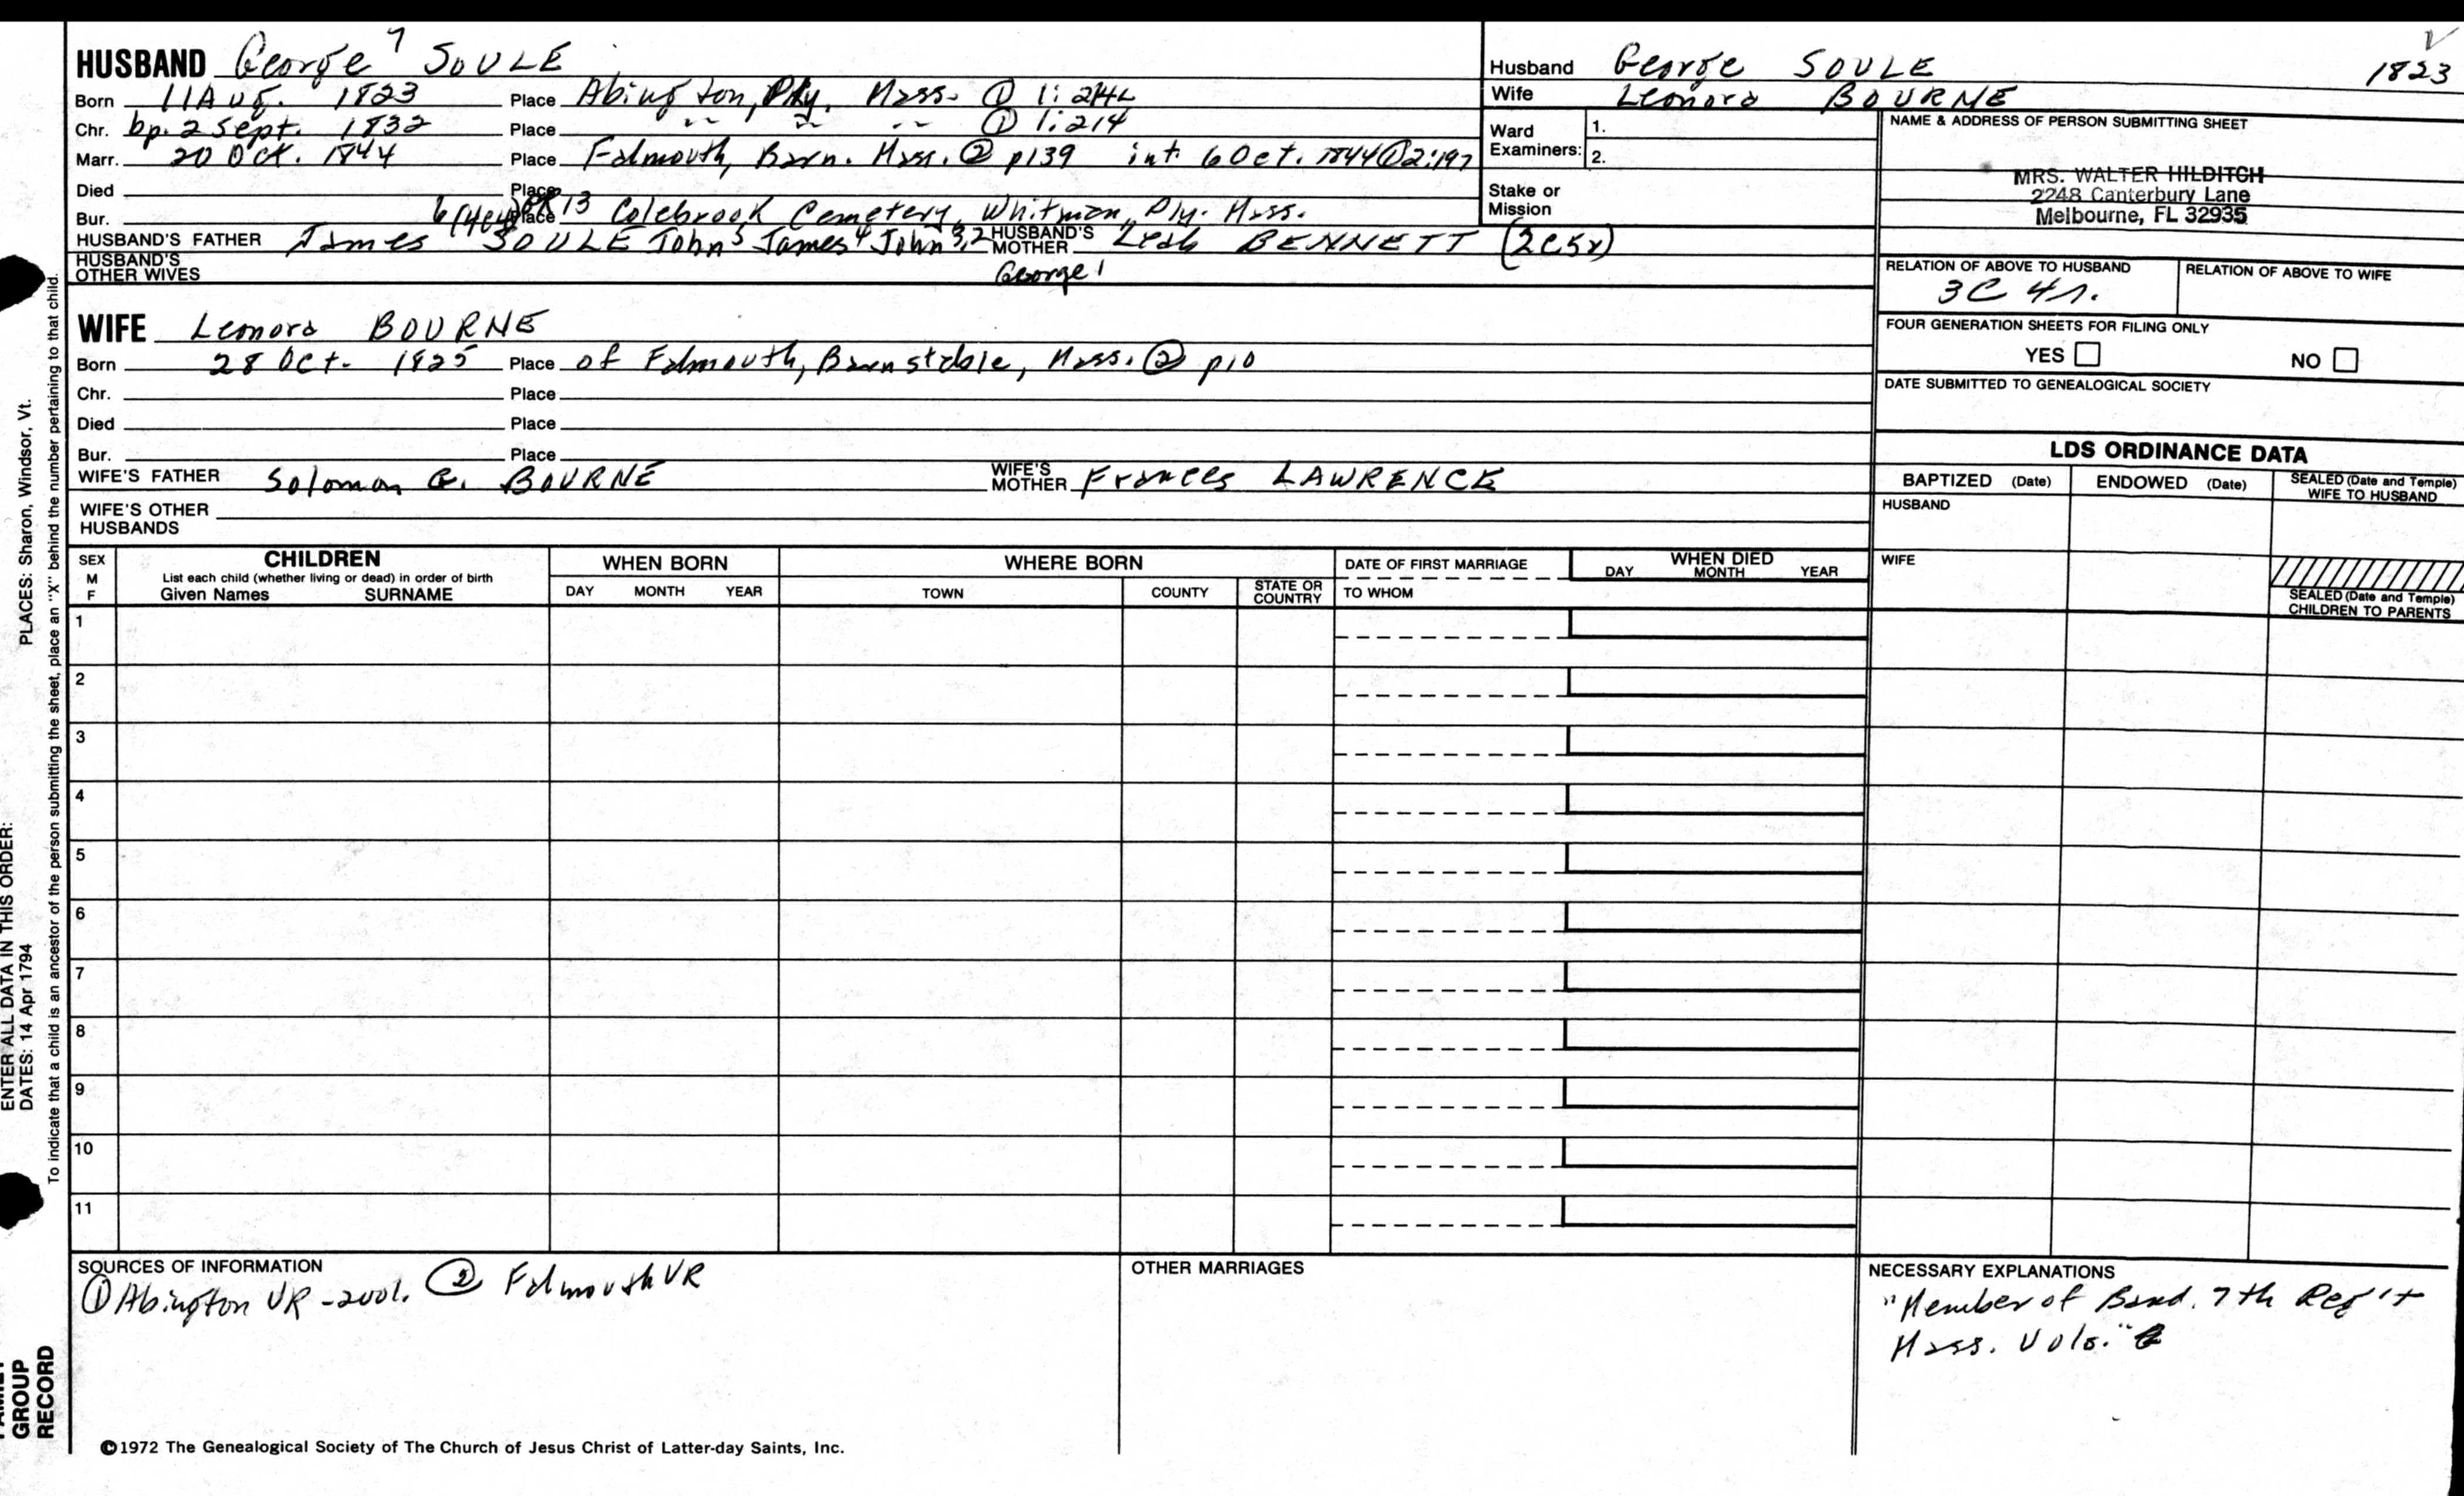 HUSBAND George 7 SOULE
Born 11 Aug. 1823 Place Abington, Ply. Mass. ①
Chr. bp. 2 Sept. 1832 Place " " " ① 1:214
Marr. 20 Oct. 1844 Place Falmouth, Barn. Mass. ② p139 int. 6 Oct. 1844 ① 2:197
Died Place
Bur. Place 13 Colebrook Cemetery, Whitman, Ply. Mass.
HUSBAND'S FATHER James SOULE John 5 James 4 John 3,2 George 1
HUSBAND'S MOTHER Leah BENNETT (2C5r)
HUSBAND'S OTHER WIVES
WIFE Leonora BOURNE
Born 28 Oct. 1825 Place of Falmouth, Barnstable, Mass. ② p10
Chr. Place
Died Place
Bur. Place
WIFE'S FATHER Solomon G. BOURNE
WIFE'S MOTHER Frances LAWRENCE
WIFE'S OTHER HUSBANDS
Husband George SOULE 1823
Wife Leonora BOURNE
Ward Examiners: 1.
2.
Stake or Mission
NAME & ADDRESS OF PERSON SUBMITTING SHEET
MRS. WALTER HILDITCH
2248 Canterbury Lane
Melbourne, FL 32935
RELATION OF ABOVE TO HUSBAND
3C 4r.
RELATION OF ABOVE TO WIFE
FOUR GENERATION SHEETS FOR FILING ONLY
YES NO
DATE SUBMITTED TO GENEALOGICAL SOCIETY
LDS ORDINANCE DATA
BAPTIZED (Date) ENDOWED (Date) SEALED (Date and Temple) WIFE TO HUSBAND
HUSBAND
WIFE
SEALED (Date and Temple) CHILDREN TO PARENTS
SEX M F
CHILDREN
List each child (whether living or dead) in order of birth
Given Names SURNAME
WHEN BORN
DAY MONTH YEAR
WHERE BORN
TOWN COUNTY STATE OR COUNTRY
DATE OF FIRST MARRIAGE
TO WHOM
WHEN DIED
DAY MONTH YEAR
1
2
3
4
5
6
7
8
9
10
11
SOURCES OF INFORMATION
① Abington VR - 2vol. ② Falmouth VR
OTHER MARRIAGES
NECESSARY EXPLANATIONS
"Member of Band. 7th Reg't
Mass. Vols."
©1972 The Genealogical Society of The Church of Jesus Christ of Latter-day Saints, Inc.
ENTER ALL DATA IN THIS ORDER:
DATES: 14 Apr 1794 PLACES: Sharon, Windsor, Vt.
To indicate that a child is an ancestor of the person submitting the sheet, place an "X" behind the number pertaining to that child.
GROUP
RECORD